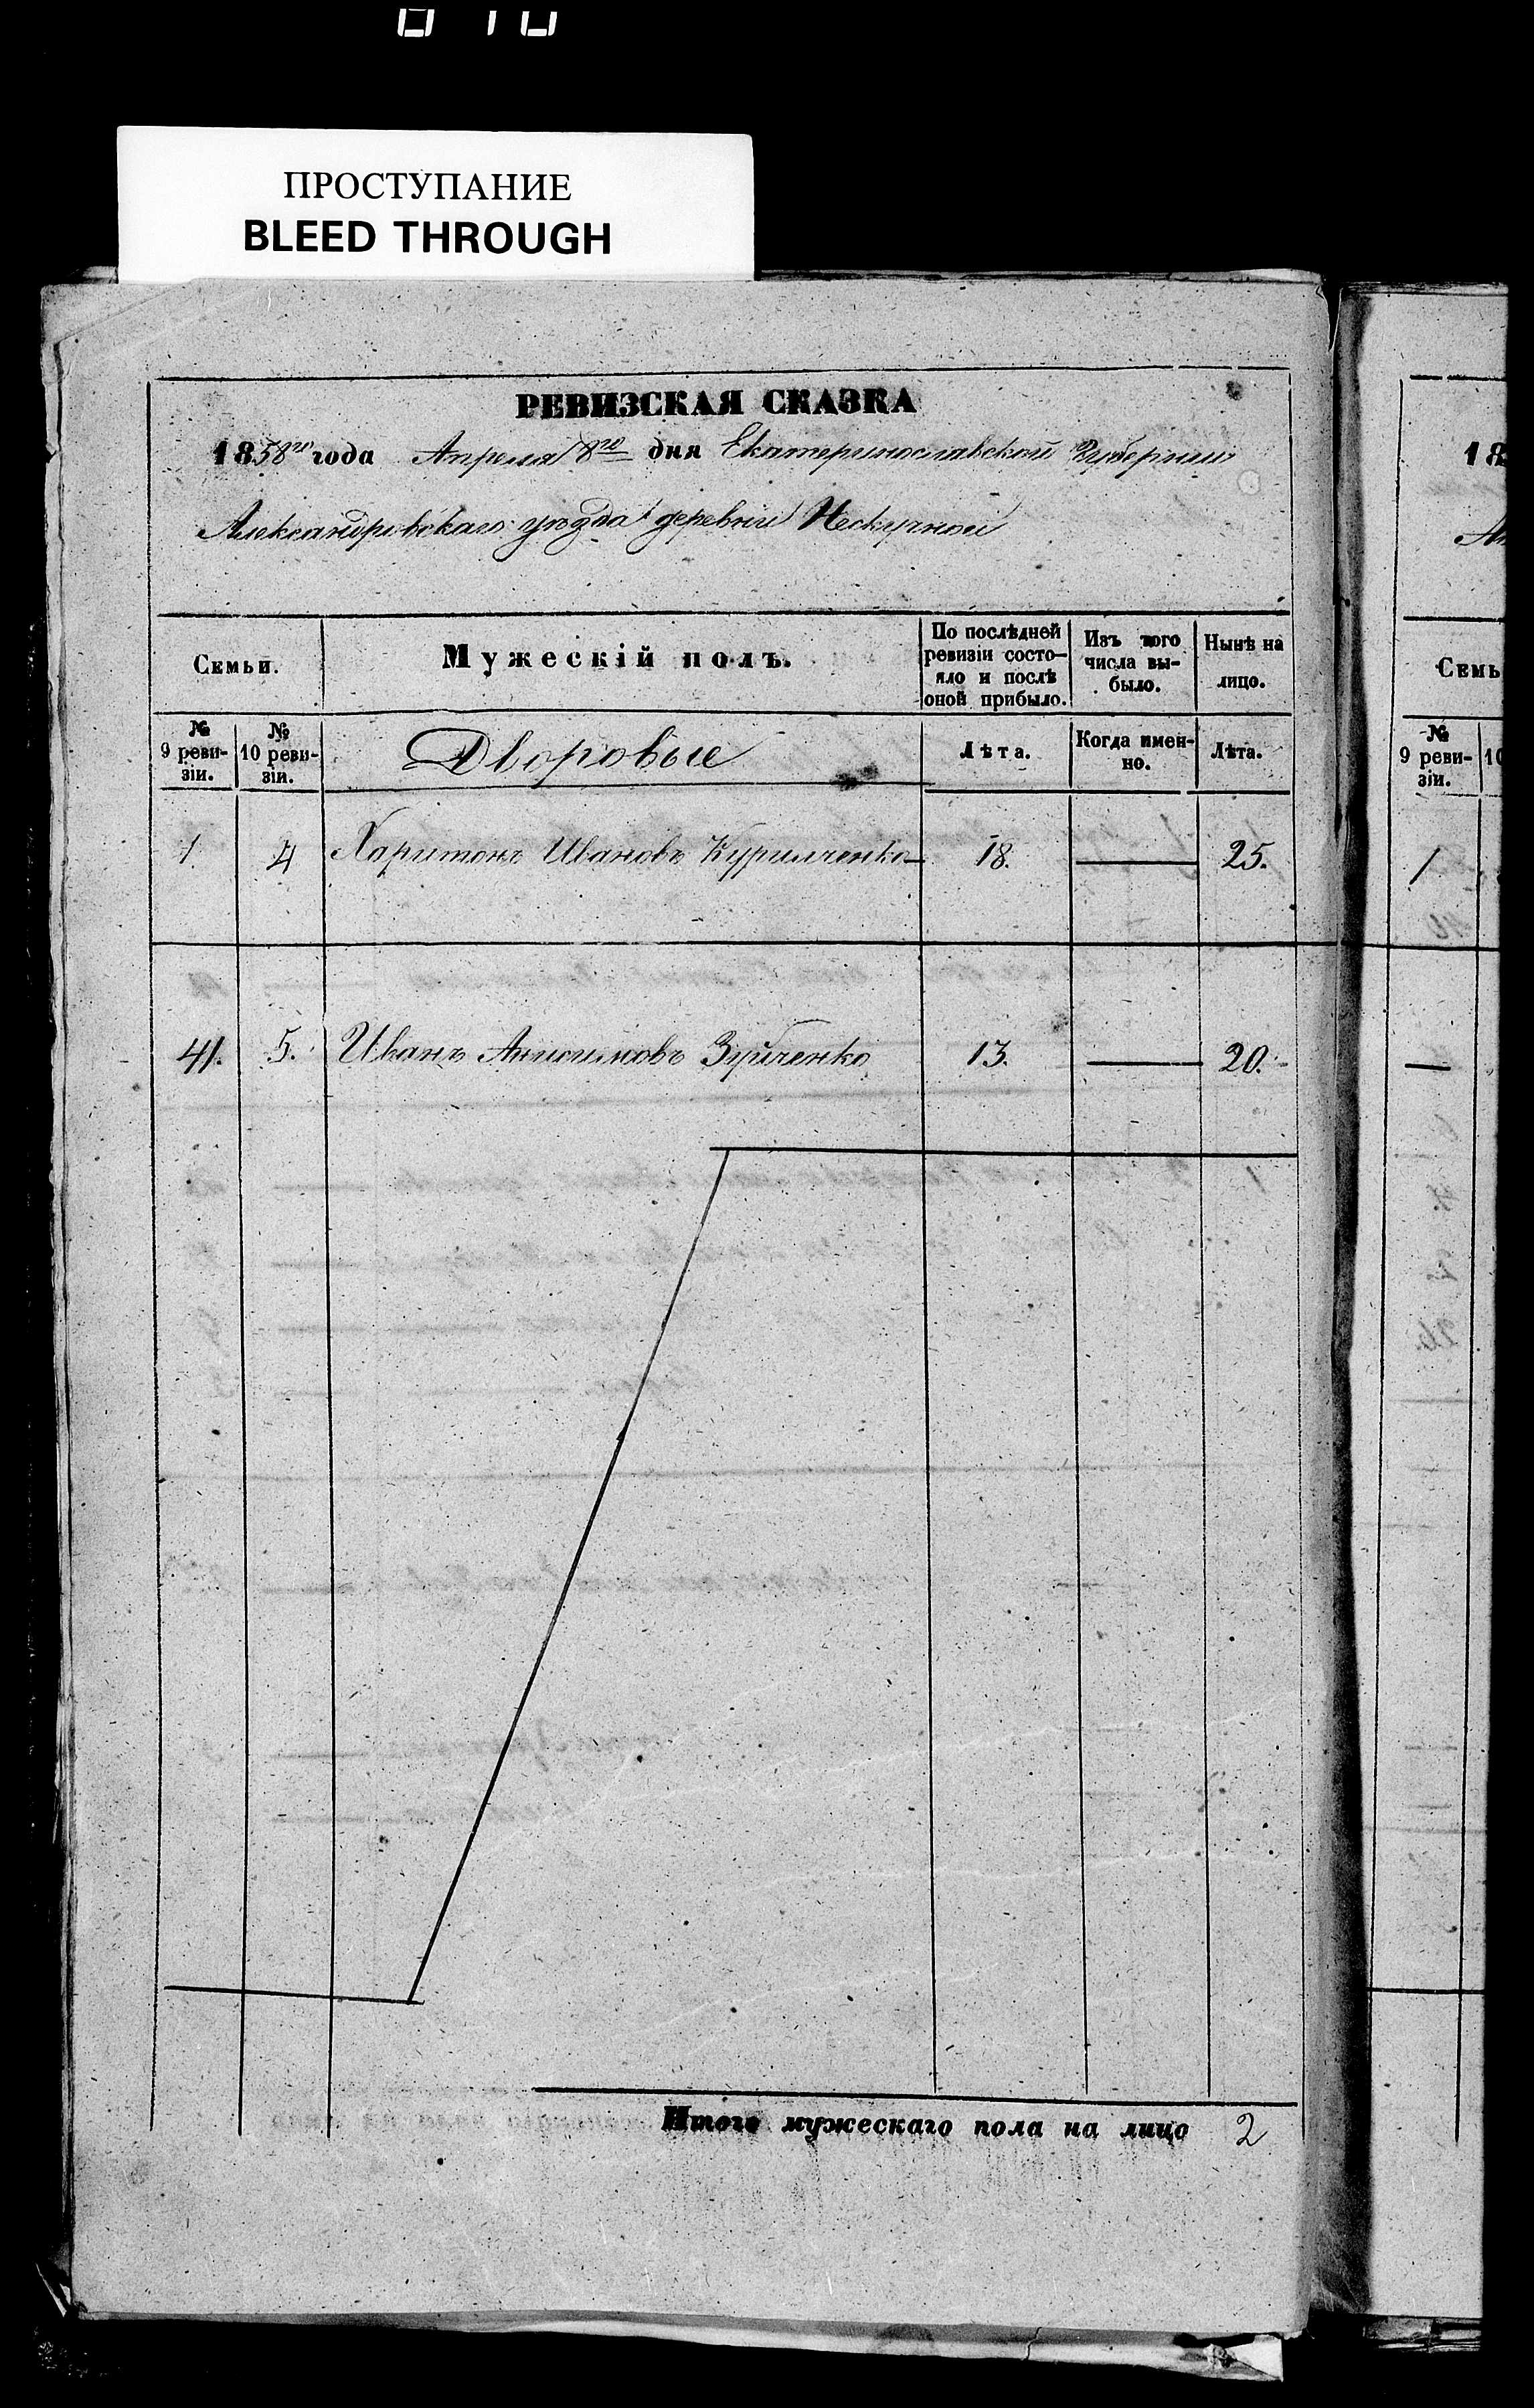 ПРОСТУПАНИЕ
BLEED THROUGH
РЕВИЗСКАЯ СКАЗКА
1858го года Апреля 8го дня Екатеринославской Губернии
Александровскаго уѣзда деревни Нескучной
Семьи.
Мужескій полъ.
По послѣдней
ревизіи состо-
яло и послѣ
оной прибыло.
Изъ того
числа вы-
было.
Нынѣ на
лицо.
№
9 реви-
зіи.
№
10 реви-
зіи.
Дворовые
Лѣта.
Когда имен-
но.
Лѣта.
1 4 Харитонъ Ивановъ Курилченко 18. — 25.
41. 5. Иванъ Анисимовъ Зубченко 13. — 20.
Итого мужескаго пола на лицо 2
18
Семь
№
9 реви-
зіи.
10
1